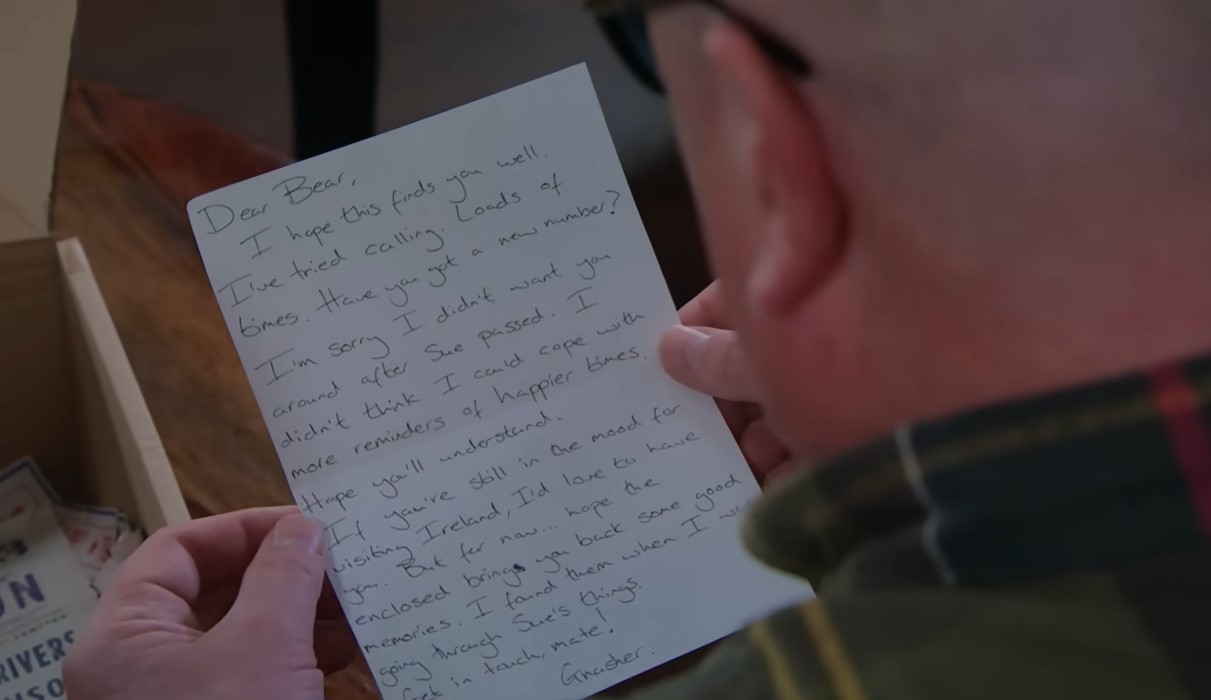 Dear Bear,
I hope this finds you well.
I've tried calling. Loads of
times. Have you got a new number?
I'm sorry I didn't want you
around after Sue passed. I
didn't think I could cope with
more reminders of happier times.
Hope you'll understand.
If you're still in the mood for
visiting Ireland, I'd love to have
you. But for now... hope the
enclosed brings you back some good
memories. I found them when I
going through Sue's things.
Get in touch, mate!
Gnasher.
ON
RIVERS